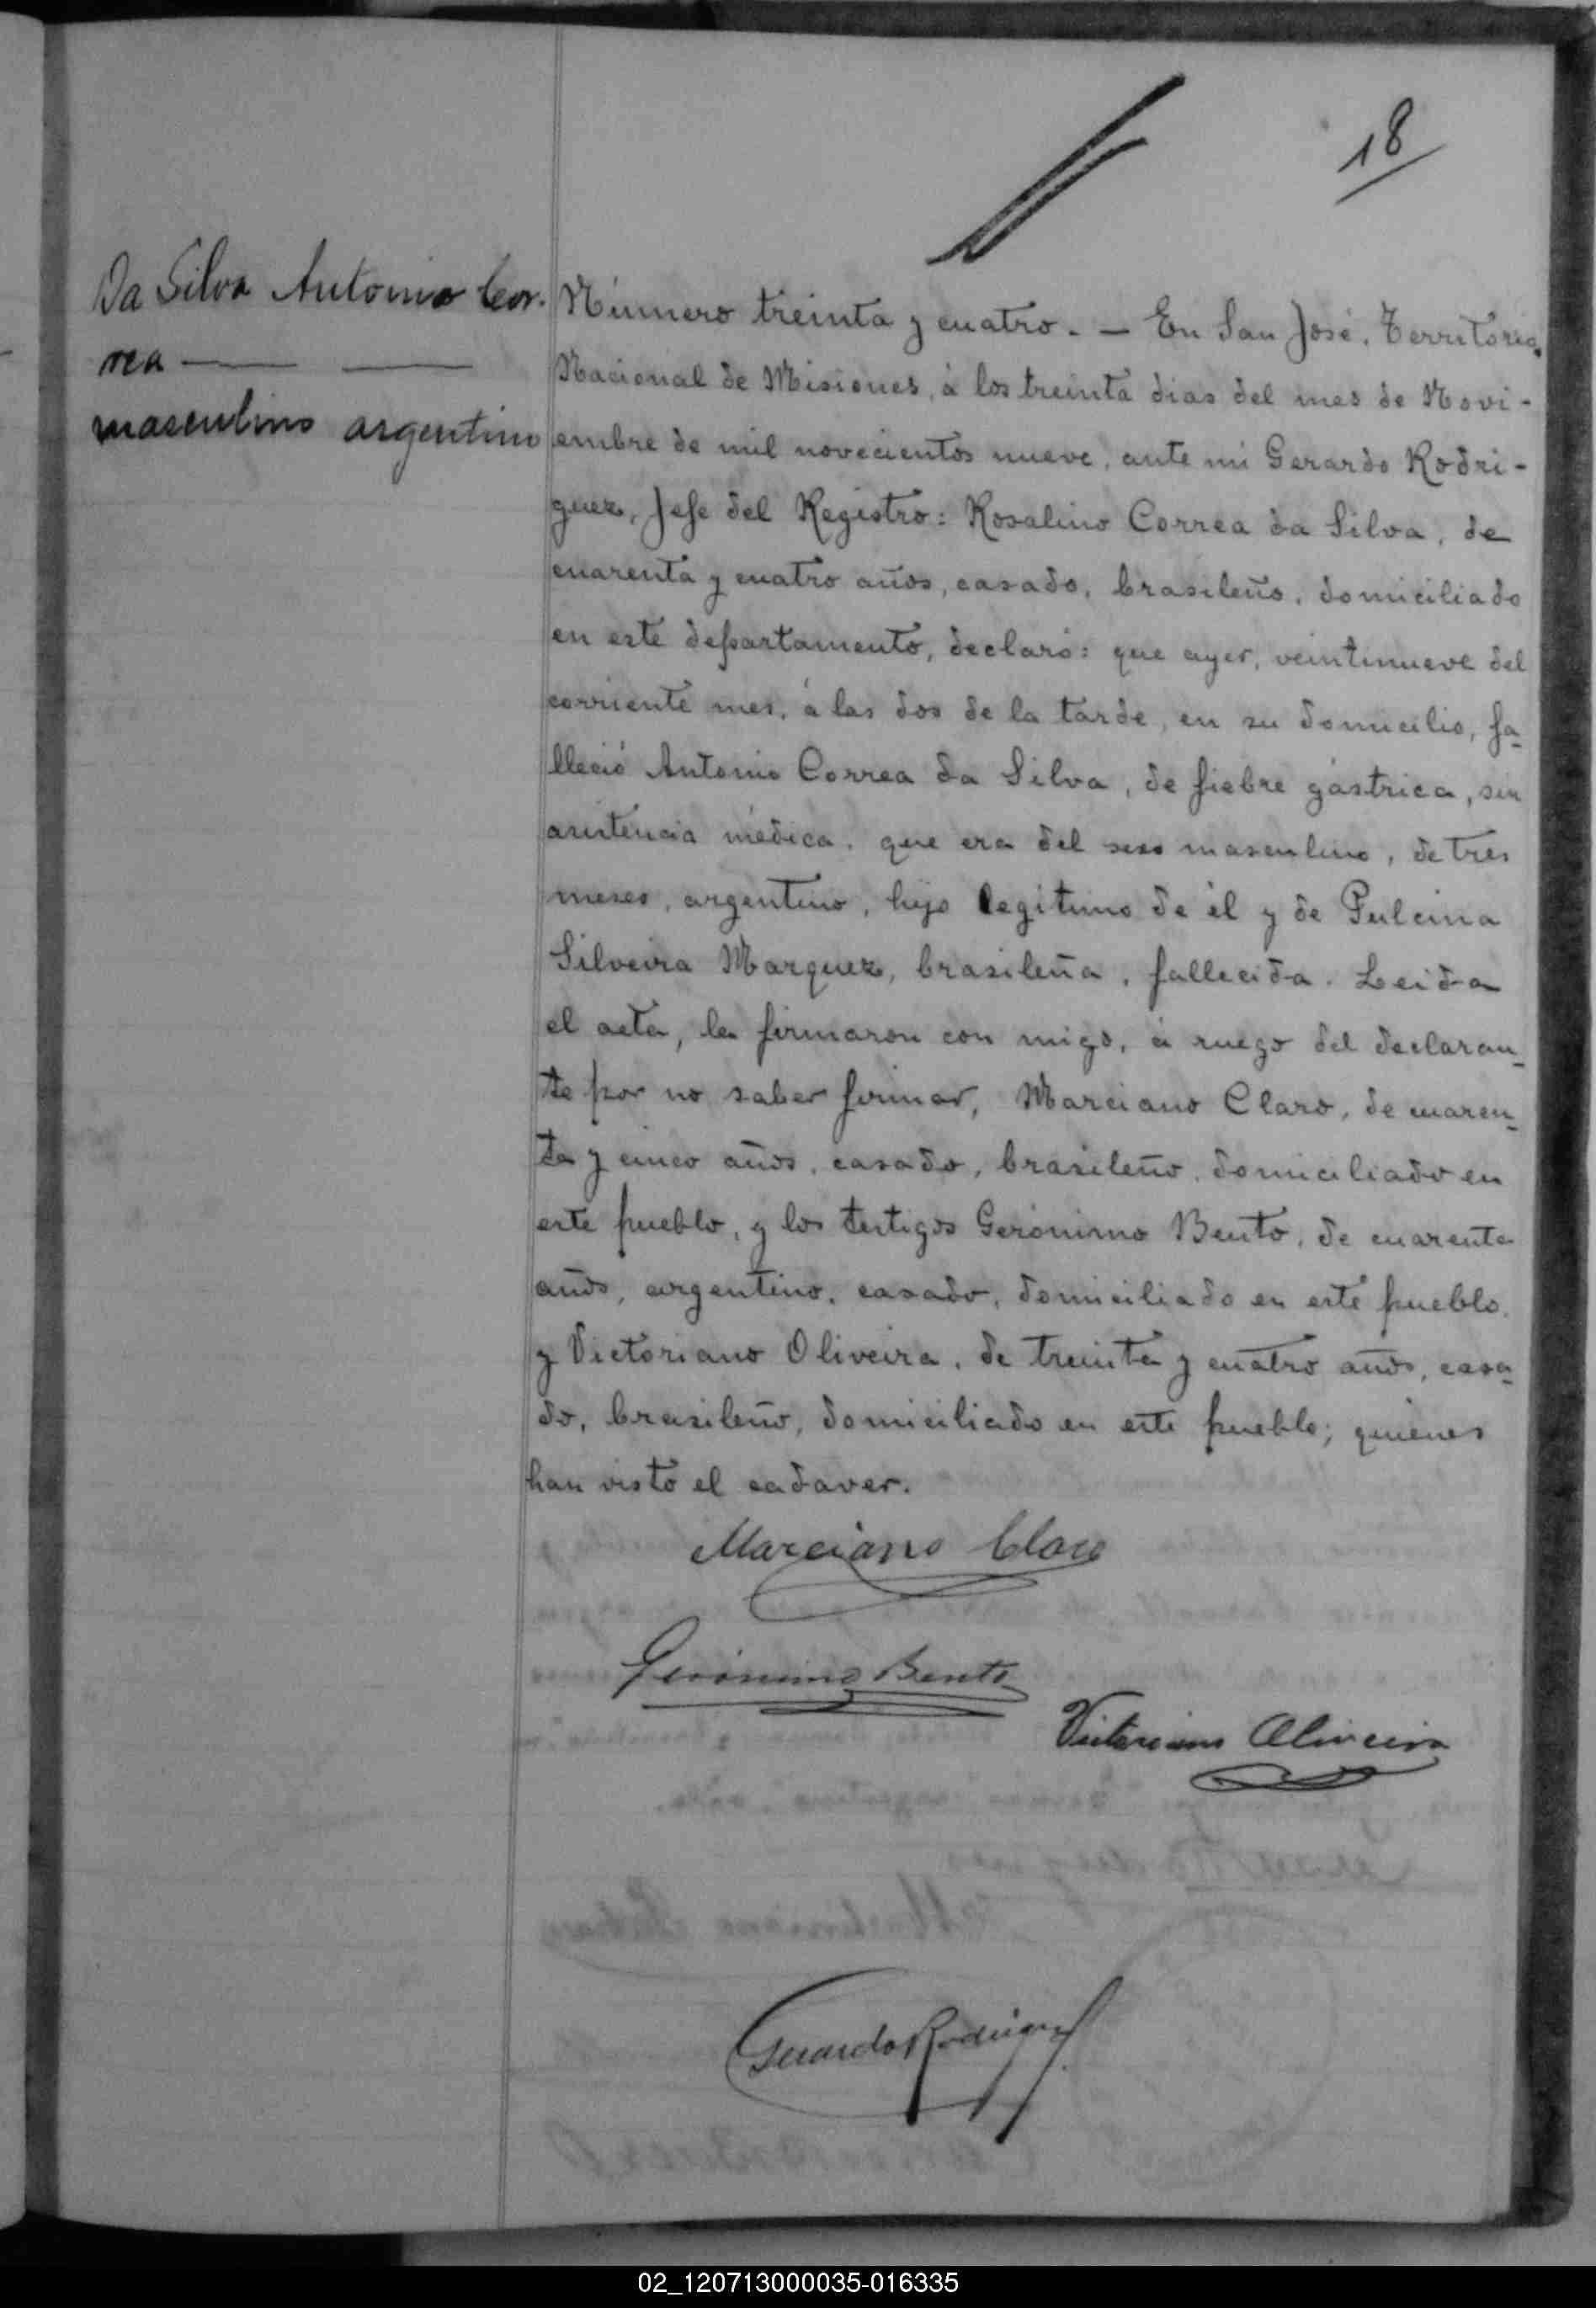 18
Da Silva Antonio Cor.
rea
masculino argentino
Número treinta y cuatro. — En San José, Territorio
Nacional de Misiones, á los treinta dias del mes de Novi-
embre de mil novecientos nueve, ante mi Gerardo Rodri-
guez, Jefe del Registro: Rosalino Correa da Silva, de
cuarenta y cuatro años, casado, brasileño, domiciliado
en este departamento, declaró: que ayer, veintinueve del
corriente mes, á las dos de la tarde, en su domicilio, fa-
lleció Antonio Correa da Silva, de fiebre gástrica, sin
asistencia médica, que era del sexo masculino, de tres
meses, argentino, hijo legitimo de él y de Pulcina
Silveira Marquez, brasileña, fallecida. Leida
el acta, la firmaron con migo, á ruego del declaran-
te por no saber firmar, Marciano Claro, de cuaren-
ta y cinco años, casado, brasileño, domiciliado en
este pueblo, y los testigos Gerónimo Bento, de cuarenta
años, argentino, casado, domiciliado en este pueblo,
y Victoriano Oliveira, de treinta y cuatro años, casa-
do, brasileño, domiciliado en este pueblo; quienes
han visto el cadaver.
Marciano Claro
Gerónimo Bento
Victoriano Oliveira
Gerardo Rodriguez
02_120713000035-016335